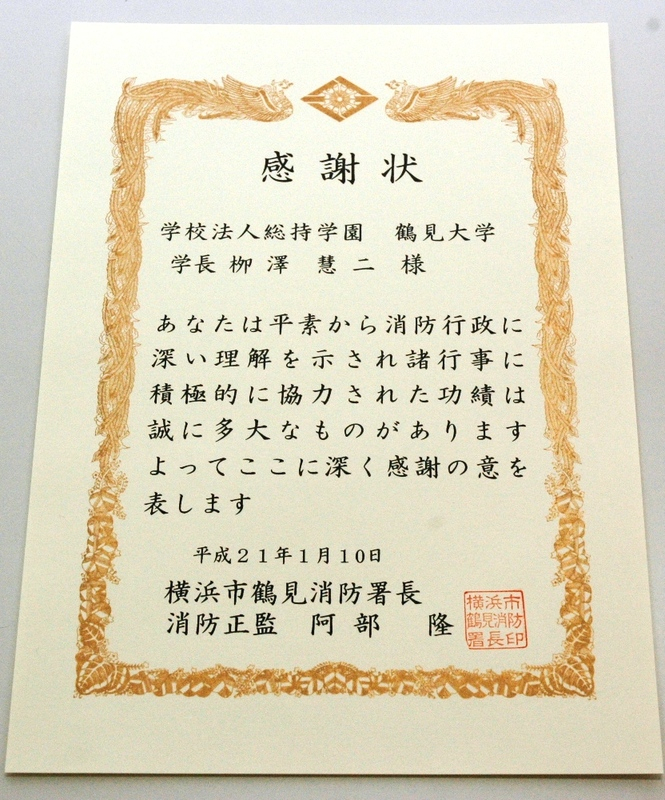 感謝状
学校法人総持学園　鶴見大学
学長 栁澤　慧二　様
あなたは平素から消防行政に
深い理解を示され諸行事に
積極的に協力された功績は
誠に多大なものがあります
よってここに深く感謝の意を
表します
平成21年1月10日
横浜市鶴見消防署長
消防正監　阿部　隆
横浜市
鶴見消防
署長印